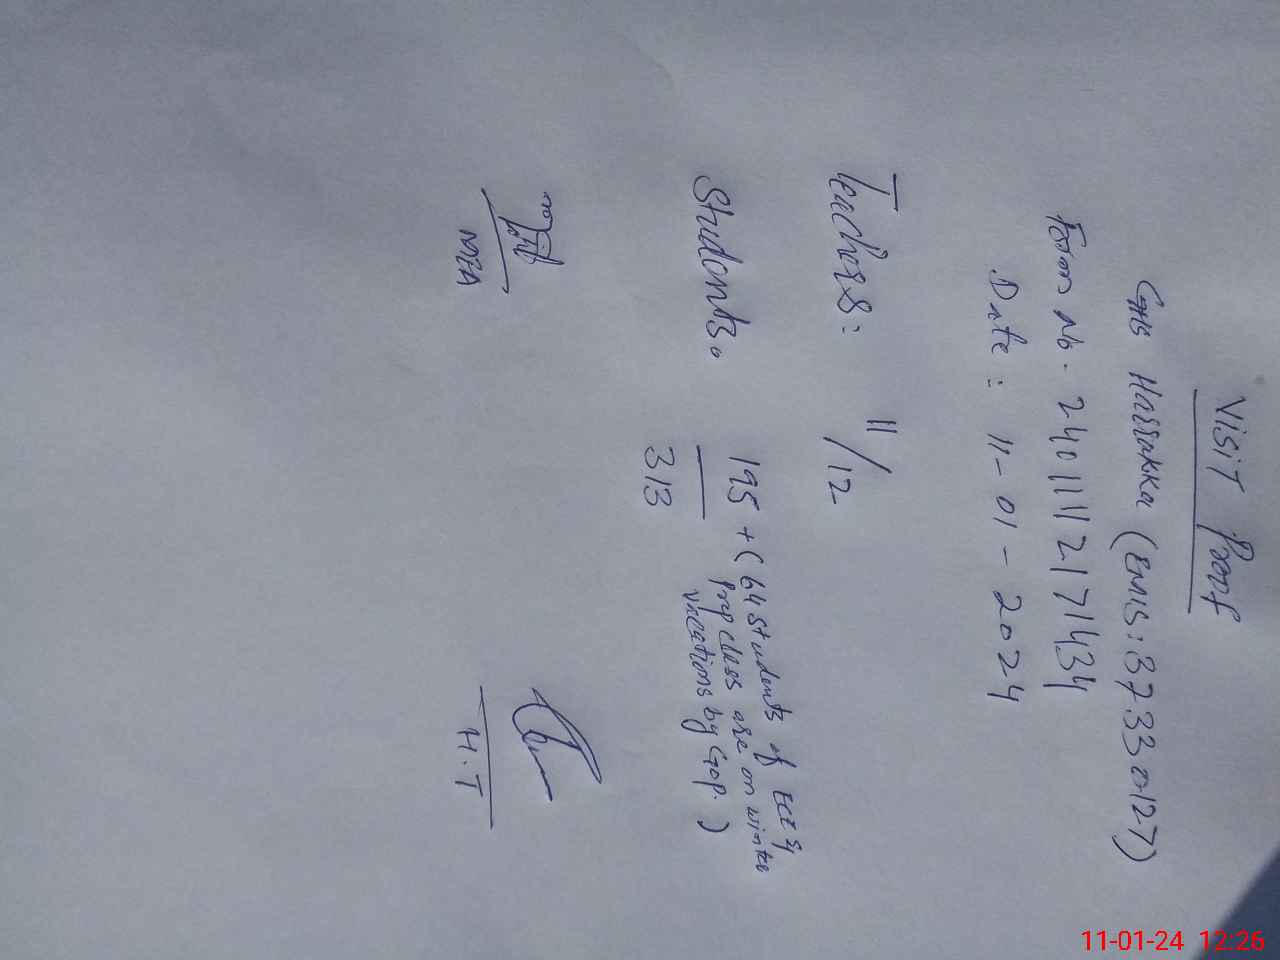 Visit Proof
GHS Harrakka (EMIS: 37330127)
Form No. 240111121 71434
Date: 11-01-2024
Teachers: 11/12
Students. 195 + (64 students of ECE &
Prep class are on winter
vacations by Gop.)
313
MEA
H.T
11-01-24 12:26